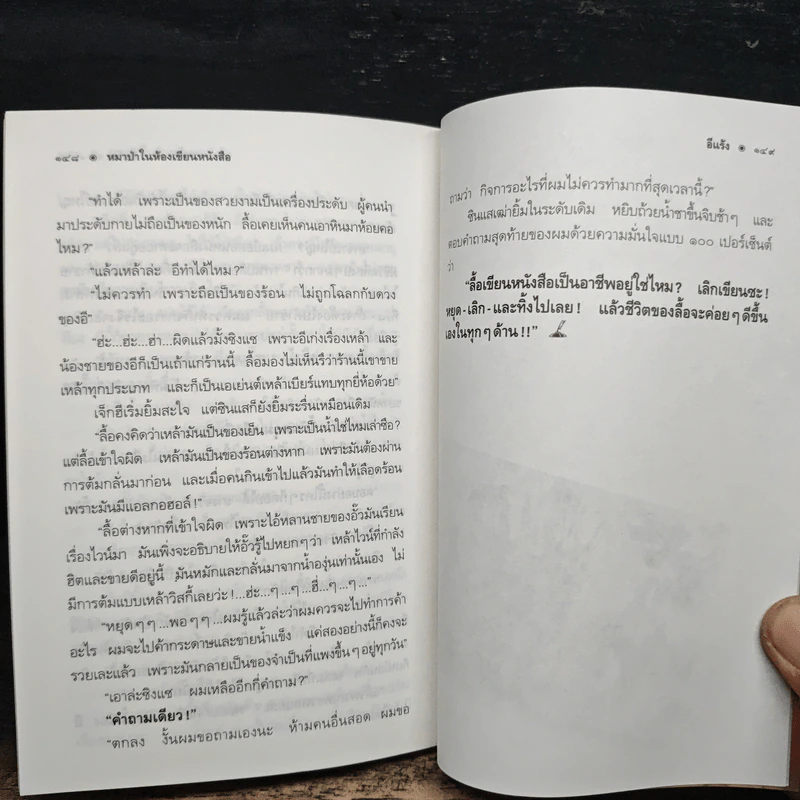 ๑๔๘ ๏ หมาป่าในห้องเขียนหนังสือ
"ทำได้ เพราะเป็นของสวยงามเป็นเครื่องประดับ ผู้คนนำ
มาประดับกายไม่ถือเป็นของหนัก ลื้อเคยเห็นคนเอาหินมาห้อยคอ
ไหม?"
"แล้วเหล้าล่ะ อีทำได้ไหม?"
"ไม่ควรทำ เพราะถือเป็นของร้อน ไม่ถูกโฉลกกับดวง
ของอี"
"ฮ่ะ...ฮ่ะ...ฮ่า...ผิดแล้วมั้งซิงแซ เพราะอีเก่งเรื่องเหล้า และ
น้องชายของอีก็เป็นเถ้าแก่ร้านนี้ ลื้อมองไม่เห็นรึว่าร้านนี้เขาขาย
เหล้าทุกประเภท และก็เป็นเอเย่นต์เหล้าเบียร์แทบทุกยี่ห้อด้วย"
เจ็กฮีเริ่มยิ้มสะใจ แต่ซินแสก็ยังยิ้มระรื่นเหมือนเดิม
"ลื้อคงคิดว่าเหล้ามันเป็นของเย็น เพราะเป็นน้ำใช่ไหมเล่าซือ?
แต่ลื้อเข้าใจผิด เหล้ามันเป็นของร้อนต่างหาก เพราะมันต้องผ่าน
การต้มกลั่นมาก่อน และเมื่อคนกินเข้าไปแล้วมันทำให้เลือดร้อน
เพราะมันมีแอลกอฮอล์!"
"ลื้อต่างหากที่เข้าใจผิด เพราะไอ้หลานชายของอั๊วมันเรียน
เรื่องไวน์มา มันเพิ่งจะอธิบายให้อั๊วรู้ไปหยกๆว่า เหล้าไวน์ที่กำลัง
ฮิตและขายดีอยู่นี้ มันหมักและกลั่นมาจากน้ำองุ่นเท่านั้นเอง ไม่
มีการต้มแบบเหล้าวิสกี้เลยว่ะ!...ฮ่ะ...ๆ...ๆ...ฮี่...ๆ...ๆ..."
"หยุดๆๆ...พอๆๆ...ผมรู้แล้วล่ะว่าผมควรจะไปทำการค้า
อะไร ผมจะไปค้ากระดาษและขายน้ำแข็ง แค่สองอย่างนี้ก็คงจะ
รวยเละแล้ว เพราะมันกลายเป็นของจำเป็นที่แพงขึ้นๆอยู่ทุกวัน"
"เอาล่ะซิงแซ ผมเหลืออีกกี่คำถาม?"
"คำถามเดียว!"
"ตกลง งั้นผมขอถามเองนะ ห้ามคนอื่นสอด ผมขอ
อีแร้ง ๏ ๑๔๙
ถามว่า กิจการอะไรที่ผมไม่ควรทำมากที่สุดเวลานี้?"
ซินแสเฒ่ายิ้มในระดับเดิม หยิบถ้วยน้ำชาขึ้นจิบช้าๆ และ
ตอบคำถามสุดท้ายของผมด้วยความมั่นใจแบบ ๑๐๐ เปอร์เซ็นต์
ว่า
"ลื้อเขียนหนังสือเป็นอาชีพอยู่ใช่ไหม? เลิกเขียนซะ!
หยุด-เลิก-และทิ้งไปเลย! แล้วชีวิตของลื้อจะค่อยๆดีขึ้น
เองในทุกๆด้าน!!"